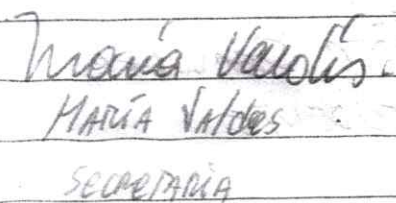 María Valdés.
MARÍA VAldes
SECRETARIA